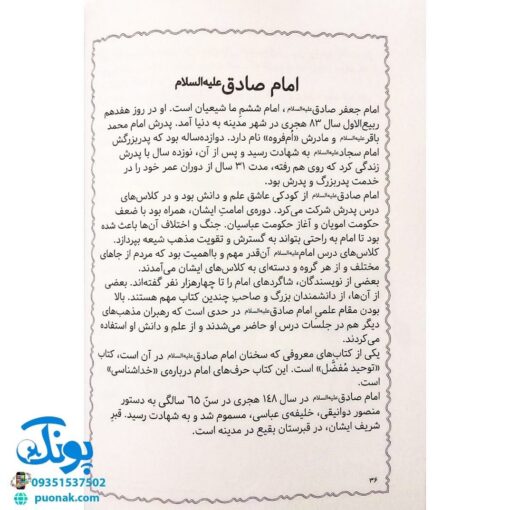 امام صادق علیه‌السلام
امام جعفر صادق علیه‌السلام، امام ششمِ ما شیعیان است. او در روز هفدهم
ربیع‌الاول سال ۸۳ هجری در شهر مدینه به دنیا آمد. پدرش امام محمد
باقر علیه‌السلام و مادرش «اُم‌فروه» نام دارد. دوازده‌ساله بود که پدربزرگش
امام سجاد علیه‌السلام به شهادت رسید و پس از آن، نوزده سال با پدرش
زندگی کرد که روی هم رفته، مدت ۳۱ سال از دوران عمر خود را در
خدمت پدربزرگ و پدرش بود.
امام صادق علیه‌السلام از کودکی عاشق علم و دانش بود و در کلاس‌های
درس پدرش شرکت می‌کرد. دوره‌ی امامتِ ایشان، همراه بود با ضعف
حکومت امویان و آغاز حکومت عباسیان. جنگ و اختلاف آن‌ها باعث شده
بود تا امام به راحتی بتواند به گسترش و تقویت مذهب شیعه بپردازد.
کلاس‌های درس امام علیه‌السلام آن‌قدر مهم و بااهمیت بود که مردم از جاهای
مختلف و از هر گروه و دسته‌ای به کلاس‌های ایشان می‌آمدند.
بعضی از نویسندگان، شاگردهای امام را تا چهارهزار نفر گفته‌اند. بعضی
از آن‌ها، از دانشمندان بزرگ و صاحب چندین کتاب مهم هستند. بالا
بودن مقام علمی امام صادق علیه‌السلام در حدی است که رهبران مذهب‌های
دیگر هم در جلسات درس او حاضر می‌شدند و از علم و دانش او استفاده
می‌کردند.
یکی از کتاب‌های معروفی که سخنان امام صادق علیه‌السلام در آن است، کتاب
«توحید مُفضَّل» است. این کتاب حرف‌های امام درباره‌ی «خداشناسی»
است.
امام صادق علیه‌السلام در سال ۱۴۸ هجری در سنّ ۶۵ سالگی به دستور
منصور دوانیقی، خلیفه‌ی عباسی، مسموم شد و به شهادت رسید. قبرِ
شریف ایشان، در قبرستان بقیع در مدینه است.
۳۶
پونک
09351537502
puonak.com